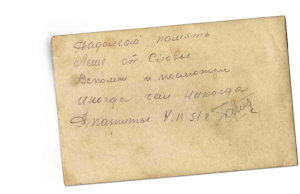 На долгую память
Лёше от Славы
Вспомни и посмотри
иногда чем никогда
Апатиты 4.II 51 г